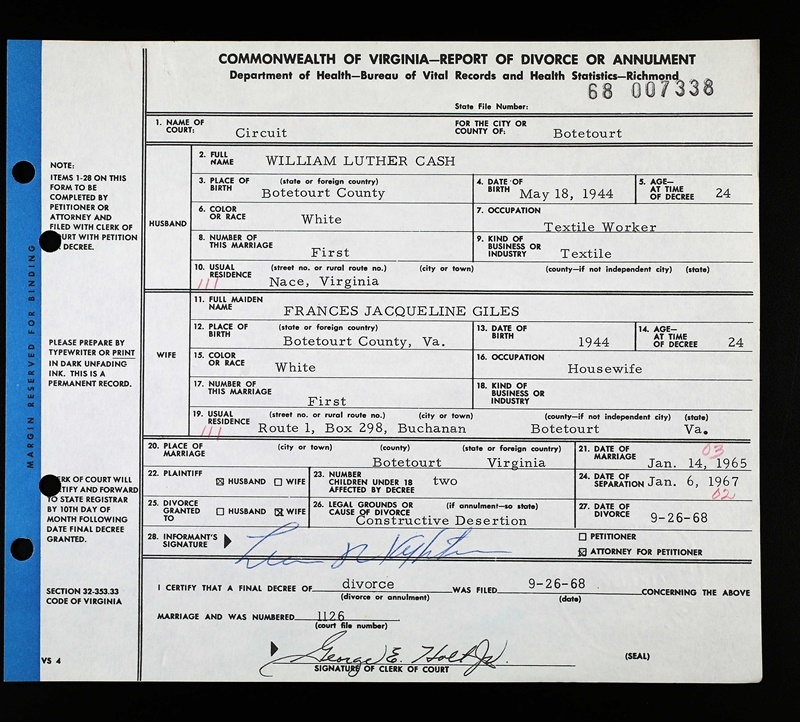 COMMONWEALTH OF VIRGINIA—REPORT OF DIVORCE OR ANNULMENT
Department of Health—Bureau of Vital Records and Health Statistics—Richmond
68 007338
State File Number:
1. NAME OF COURT: Circuit FOR THE CITY OR COUNTY OF: Botetourt
HUSBAND
2. FULL NAME WILLIAM LUTHER CASH
3. PLACE OF BIRTH (state or foreign country) Botetourt County 4. DATE OF BIRTH May 18, 1944 5. AGE— AT TIME OF DECREE 24
6. COLOR OR RACE White 7. OCCUPATION Textile Worker
8. NUMBER OF THIS MARRIAGE First 9. KIND OF BUSINESS OR INDUSTRY Textile
10. USUAL RESIDENCE (street no. or rural route no.) (city or town) (county—if not independent city) (state)
111 Nace, Virginia
WIFE
11. FULL MAIDEN NAME FRANCES JACQUELINE GILES
12. PLACE OF BIRTH (state or foreign country) Botetourt County, Va. 13. DATE OF BIRTH 1944 14. AGE— AT TIME OF DECREE 24
15. COLOR OR RACE White 16. OCCUPATION Housewife
17. NUMBER OF THIS MARRIAGE First 18. KIND OF BUSINESS OR INDUSTRY
19. USUAL RESIDENCE (street no. or rural route no.) (city or town) (county—if not independent city) (state)
111 Route 1, Box 298, Buchanan Botetourt Va.
20. PLACE OF MARRIAGE (city or town) (county) (state or foreign country) Botetourt Virginia 21. DATE OF MARRIAGE 03 Jan. 14, 1965
22. PLAINTIFF ☒ HUSBAND ☐ WIFE 23. NUMBER CHILDREN UNDER 18 AFFECTED BY DECREE two 24. DATE OF SEPARATION Jan. 6, 1967
25. DIVORCE GRANTED TO ☐ HUSBAND ☒ WIFE 26. LEGAL GROUNDS OR CAUSE OF DIVORCE (if annulment—so state) Constructive Desertion 27. DATE OF DIVORCE 02 9-26-68
28. INFORMANT'S SIGNATURE ☐ PETITIONER
☒ ATTORNEY FOR PETITIONER
I CERTIFY THAT A FINAL DECREE OF divorce WAS FILED 9-26-68 CONCERNING THE ABOVE
(divorce or annulment) (date)
MARRIAGE AND WAS NUMBERED 1126
(court file number)
George E. Holt Jr. (SEAL)
SIGNATURE OF CLERK OF COURT
NOTE:
ITEMS 1-28 ON THIS
FORM TO BE
COMPLETED BY
PETITIONER OR
ATTORNEY AND
FILED WITH CLERK OF
COURT WITH PETITION
DECREE.
MARGIN RESERVED FOR BINDING
PLEASE PREPARE BY
TYPEWRITER OR PRINT
IN DARK UNFADING
INK. THIS IS A
PERMANENT RECORD.
CLERK OF COURT WILL
CERTIFY AND FORWARD
TO STATE REGISTRAR
BY 10TH DAY OF
MONTH FOLLOWING
DATE FINAL DECREE
GRANTED.
SECTION 32-353.33
CODE OF VIRGINIA
VS 4